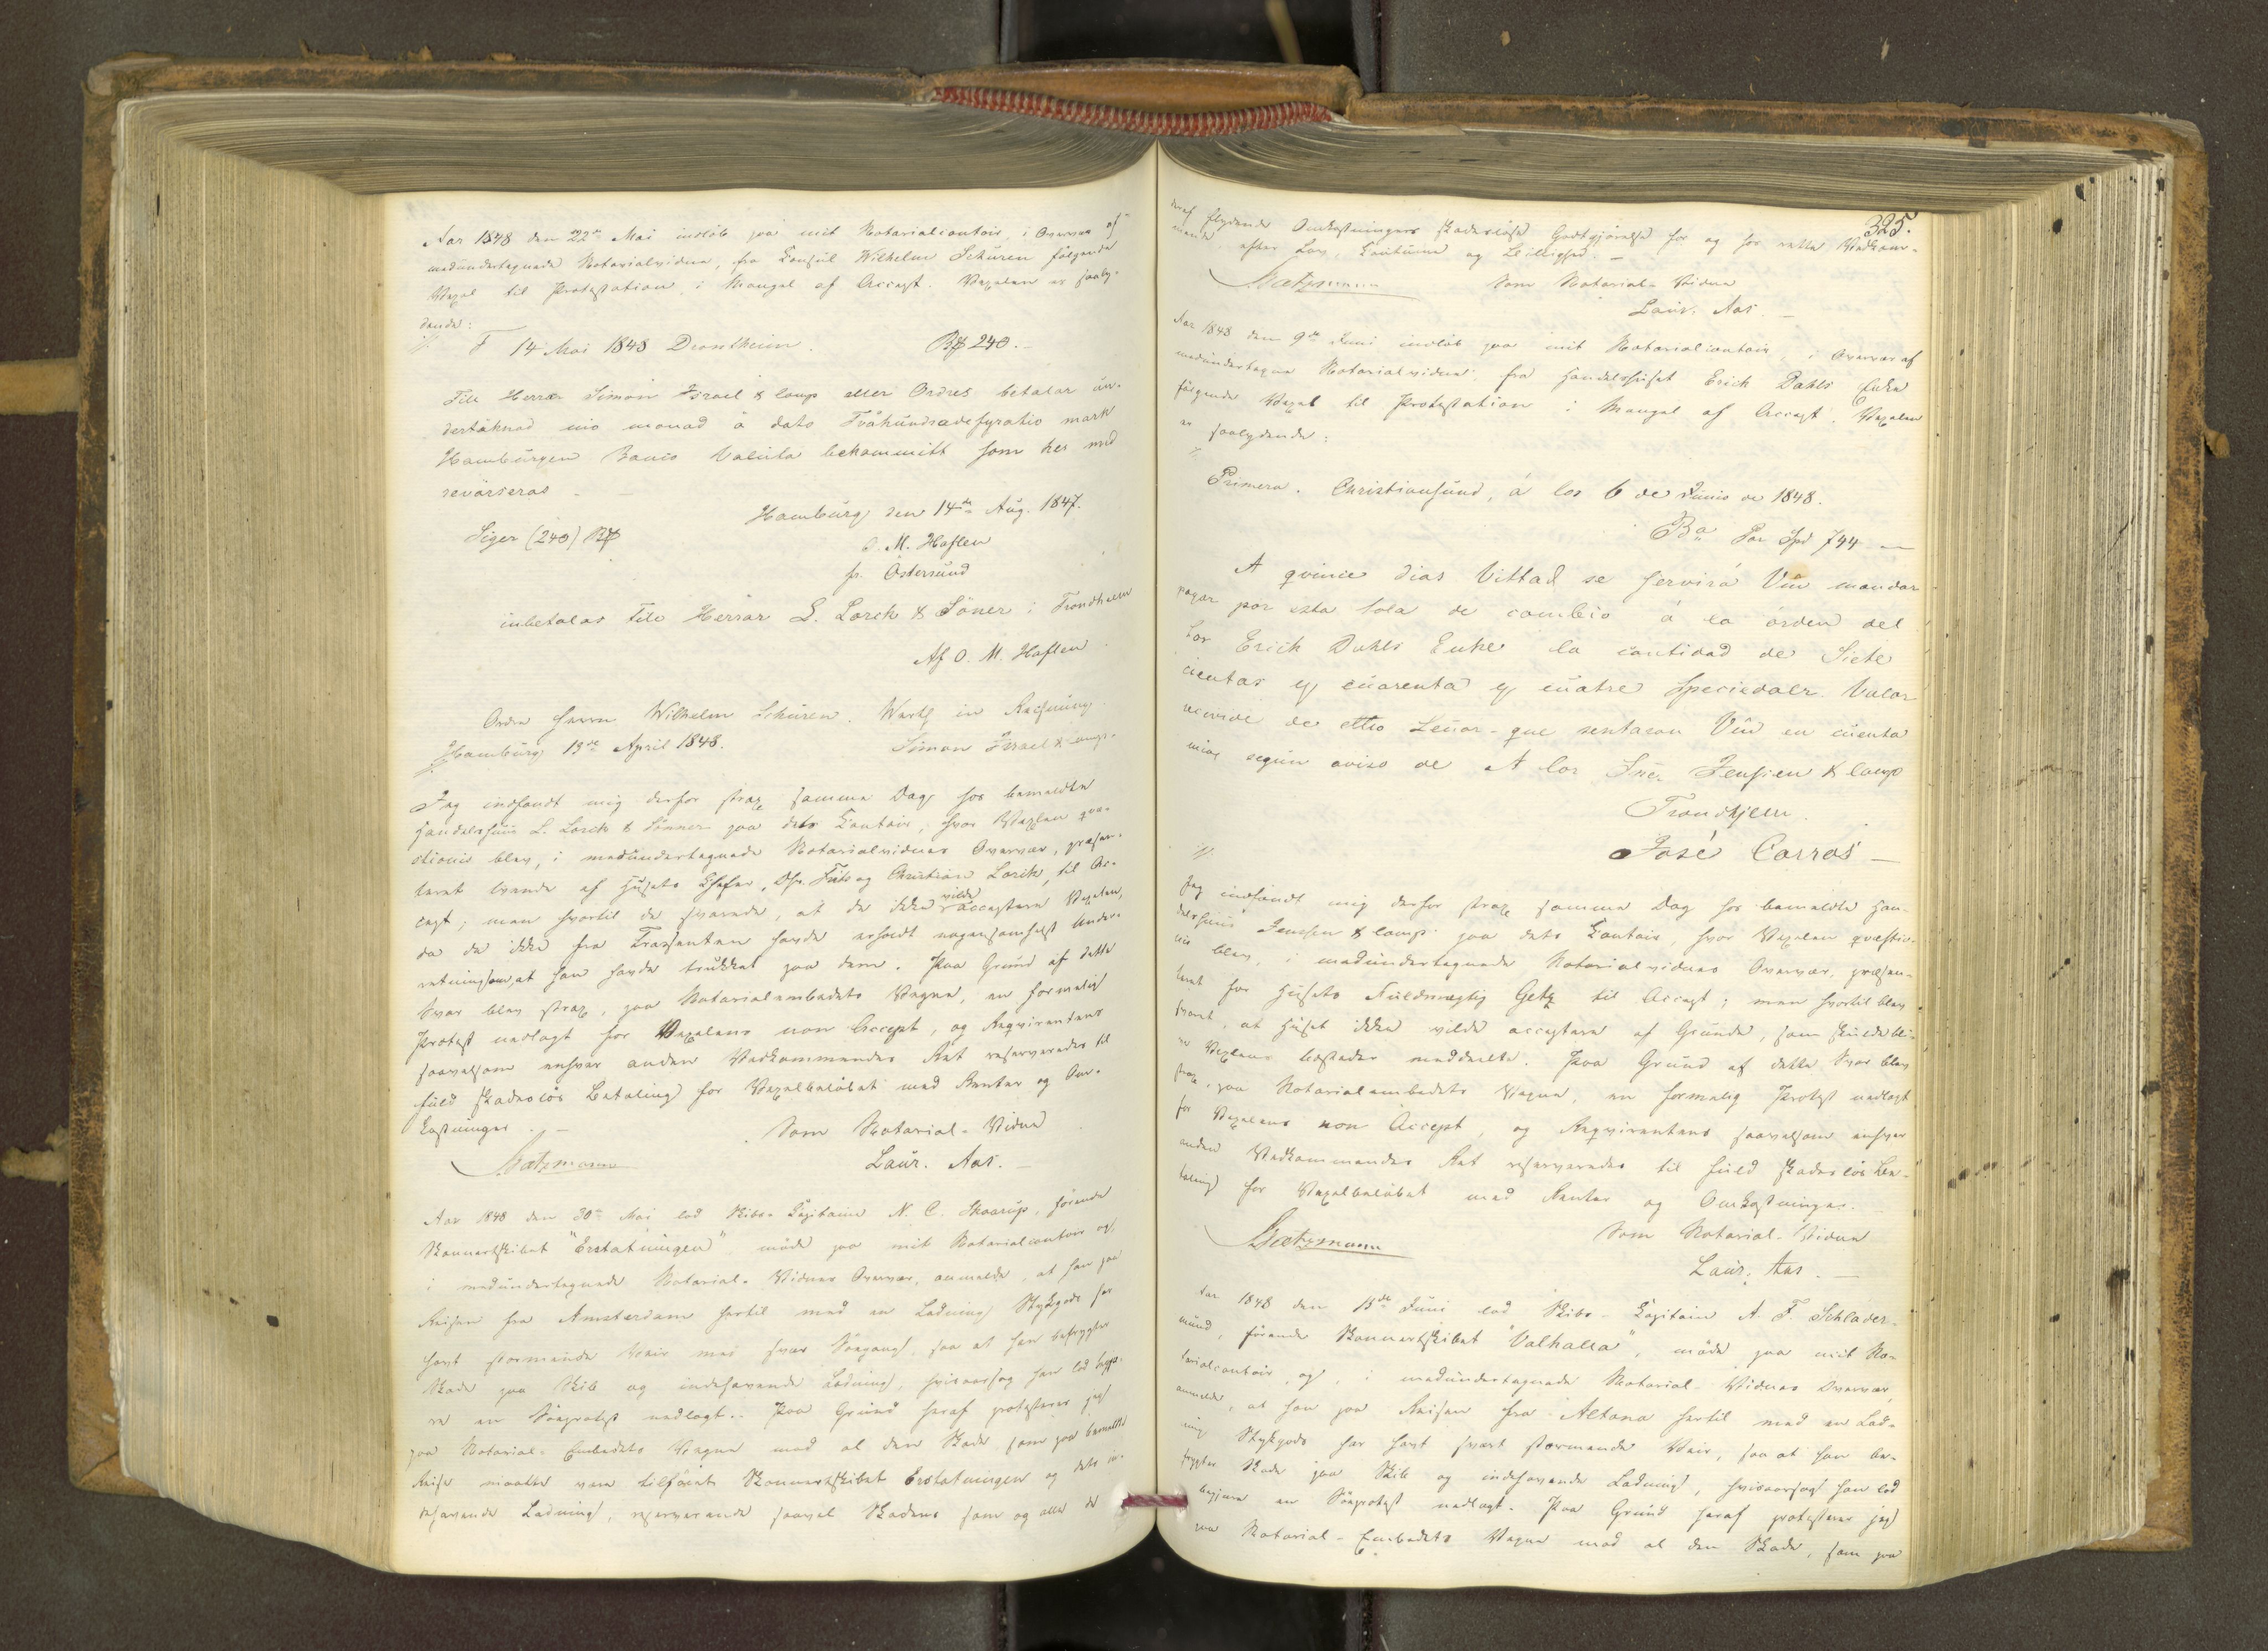 Aar 1848 den 22de Mai indløb paa mit Notarialcontoir, i Overvær af
medundertegnede Notarialvidne, fra Consul Wilhelm Schüren følgende
Vexel til Protestation i Mangel af Accept. Vexelen er saaly-
dende:
14 Mai 1848 Drontheim. B₰ 240.-
Till Herrar Simon Israel & Comp eller Ordres betalar un-
dertäknad nio monad à dato Tvåhundradefyratio mark
Hamburgen Banco Valuta bekommitt som her med
reverseras -
Hamburg den 14de Aug. 1847.
Siger (240) B₰
O. M. Haflen
fr. Östersund
inbetalas till Herrar L. Lorck & Söner i Trondheim
Af O. M. Haflen
Ordre Herrn Wilhelm Schüren. Werth in Rechnung.
Hamburg 13de April 1848. Simon Israel & Comp.
Jeg indfandt mig derfor strax samme Dag hos bemeldte
Handelshuus L. Lorck & Sønner paa dets Contoir, hvor Vexlen qvæ-
stionis blev, i medundertegnede Notarialvidnes Overvær, præsen-
teret begge af Husets Chefer, Hr. Fritz og Christian Lorck, til Ac-
cept; men hvortil de svarede, at de ikke vilde acceptere Vexelen,
da de ikke fra Trassenten havde erholdt nogensomhelst Under-
retning om, at han havde trukket paa dem. Paa Grund af dette
Svar blev strax, paa Notarialembedets Vegne, en formelig
Protest nedlagt for Vexelens non Accept, og Reqvirentens
saavelsom enhver anden Vedkommendes Ret reserveredes til
fuld skadesløs Betaling for Vexelbeløbet med Renter og Om-
kostninger. -
Som Notarial-Vidne
Matzmann Laur. Aas. -
Aar 1848 den 30te Mai lod Skibs-Capitain N. C. Skaarup, førende
Skonnertskibet "Erstatningen" møde paa mit Notarialcontoir og,
i medundertegnede Notarial-Vidnes Overvær, anmelde, at han paa
Reisen fra Amsterdam hertil med en Ladning Stykgods har
havt stormende Veir med svær Søegang, saa at han befrygter
Skade paa Skib og indehavende Ladning, hvisaarsag han lod begje-
re en Søeprotest nedlagt. Paa Grund heraf protesterer jeg
paa Notarial-Embedets Vegne mod al den Skade, som paa bemeldte
Reise maatte være tilføiet Skonnertskibet Erstatningen og dets in-
dehavende Ladning, reserverende saavel Skadens som og alle de
325.
deraf flydende Omkostningers skadesløse Godtgjørelse for og hos rette Vedkom-
mende efter Lov, Contume og Leilighed. -
Matzmann Som Notarial-Vidne
Laur. Aas. -
Aar 1848 den 9de Juni indløb paa mit Notarialcontoir, i Overvær af
medundertegne Notarialvidne, fra Handelshuset Erich Dahls Enke
følgende Vexel til Protestation i Mangel af Accept. Vexelen
er saalydende:
Primera. Christiansund, á los 6 de Junio de 1848.
Ba Por Spd 744 -
A qvince dias Vittad se servirá Vm mandar
pagar por esta sola de cambio á la órden del
Sor Erich Dahls Enke la cantidad de Siete
cientas y cuarenta y cuatre Speciedalr. Valor
recivide de ttio Señor - que sentaran Vm en cuenta
mia segun aviso de A los Snr. Jenssen & Comp
Trondhjem.
José Carras -
Jeg indfandt mig derfor strax samme Dag hos bemeldte Han-
delshuus Jenssen & Comp. paa dets Contoir, hvor Vexelen qvæstio-
nis blev, i medundertegnede Notarialvidnes Overvær, præsen-
teret for Husets Fuldmægtig Getz til Accept; men hvortil blev
svaret, at Huset ikke vilde acceptere af Grunde, som skulde bli-
ve Vexlens Udsteder meddeelte. Paa Grund af dette Svar blev
strax, paa Notarialembedets Vegne, en formelig Protest nedlagt
for Vexelens non Accept, og Reqvirentens saavelsom enhver
anden Vedkommendes Ret reserveredes til fuld skadesløs Be-
taling for Vexelbeløbet med Renter og Omkostninger.
Som Notarial-Vidne
Matzmann
Laur. Aas. -
Aar 1848 den 13de Juni lod Skibs-Capitain A. F. Schlader-
mund, førende Skonnertskibet "Valhalla", møde paa mit No-
tarialcontoir og, i medundertegnede Notarial-Vidnes Overvær,
anmelde, at han paa Reisen fra Altona hertil med en Lad-
ning Stykgods har havt svært stormende Veir, saa at han be-
frygter Skade paa Skib og indehavende Ladning, hvisaarsag han lod
begjere en Søeprotest nedlagt. Paa Grund heraf protesterer jeg
paa Notarial-Embedets Vegne mod al den Skade, som paa